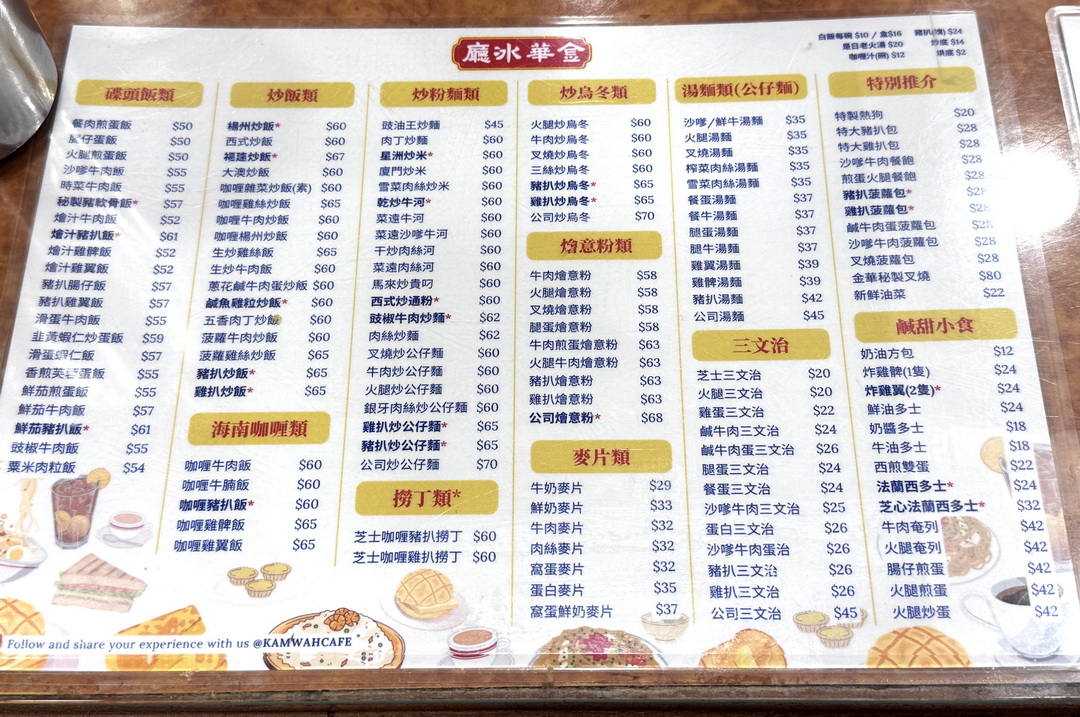 廳冰華金
白飯每碗 $10 / 盒$16 豬扒(塊) $24
是日老火湯 $20 炒底 $14
咖喱汁(碗) $12 烘底 $2
碟頭飯類
餐肉煎蛋飯 $50
腸仔蛋飯 $50
火腿煎蛋飯 $50
沙嗲牛肉飯 $55
時菜牛肉飯 $55
秘製豬軟骨飯* $57
燴汁牛肉飯 $52
燴汁豬扒飯* $61
燴汁雞髀飯 $52
燴汁雞翼飯 $52
豬扒腸仔飯 $57
豬扒雞翼飯 $57
滑蛋牛肉飯 $55
韭黃蝦仁炒蛋飯 $59
滑蛋蝦仁飯 $57
香煎芙蓉蛋飯 $55
鮮茄煎蛋飯 $55
鮮茄牛肉飯 $57
鮮茄豬扒飯* $61
豉椒牛肉飯 $55
粟米肉粒飯 $54
炒飯類
楊州炒飯* $60
西式炒飯 $60
福建炒飯* $67
大澳炒飯 $60
咖喱雜菜炒飯(素) $60
咖喱雞絲炒飯 $65
咖喱牛肉炒飯 $60
咖喱楊州炒飯 $60
生炒雞絲飯 $65
生炒牛肉飯 $60
蔥花鹹牛肉蛋炒飯 $60
鹹魚雞粒炒飯* $60
五香肉丁炒飯 $60
菠蘿牛肉炒飯 $60
菠蘿雞絲炒飯 $65
豬扒炒飯* $65
雞扒炒飯* $65
海南咖喱類
咖喱牛肉飯 $60
咖喱牛腩飯 $60
咖喱豬扒飯* $60
咖喱雞髀飯 $65
咖喱雞翼飯 $65
炒粉麵類
豉油王炒麵 $45
肉丁炒麵 $60
星洲炒米* $60
廈門炒米 $60
雪菜肉絲炒米 $60
乾炒牛河* $60
菜遠牛河 $60
菜遠沙嗲牛河 $60
干炒肉絲河 $60
菜遠肉絲河 $60
馬來炒貴叼 $60
西式炒通粉* $60
豉椒牛肉炒麵* $62
肉絲炒麵 $62
叉燒炒公仔麵 $60
牛肉炒公仔麵 $60
火腿炒公仔麵 $60
銀牙肉絲炒公仔麵 $60
雞扒炒公仔麵* $65
豬扒炒公仔麵* $65
公司炒公仔麵 $70
撈丁類*
芝士咖喱豬扒撈丁 $60
芝士咖喱雞扒撈丁 $60
炒烏冬類
火腿炒烏冬 $60
牛肉炒烏冬 $60
叉燒炒烏冬 $60
三絲炒烏冬 $60
豬扒炒烏冬* $65
雞扒炒烏冬* $65
公司炒烏冬 $70
燴意粉類
牛肉燴意粉 $58
火腿燴意粉 $58
叉燒燴意粉 $58
腿蛋燴意粉 $58
牛肉煎蛋燴意粉 $63
火腿牛肉燴意粉 $63
豬扒燴意粉 $63
雞扒燴意粉 $63
公司燴意粉* $68
麥片類
牛奶麥片 $29
鮮奶麥片 $33
牛肉麥片 $32
肉絲麥片 $32
窩蛋麥片 $32
蛋白麥片 $35
窩蛋鮮奶麥片 $37
湯麵類(公仔麵)
沙嗲/鮮牛湯麵 $35
火腿湯麵 $35
叉燒湯麵 $35
榨菜肉絲湯麵 $35
雪菜肉絲湯麵 $35
餐蛋湯麵 $37
餐牛湯麵 $37
腿蛋湯麵 $37
腿牛湯麵 $37
雞翼湯麵 $39
雞髀湯麵 $39
豬扒湯麵 $42
公司湯麵 $45
三文治
芝士三文治 $20
火腿三文治 $20
雞蛋三文治 $22
鹹牛肉三文治 $24
鹹牛肉蛋三文治 $26
腿蛋三文治 $24
餐蛋三文治 $24
沙嗲牛肉三文治 $25
蛋白三文治 $26
沙嗲牛肉蛋治 $26
豬扒三文治 $26
雞扒三文治 $26
公司三文治 $45
特別推介
特製熱狗 $20
特大豬扒包 $28
特大雞扒包 $28
沙嗲牛肉餐飽 $28
煎蛋火腿餐飽 $28
豬扒菠蘿包*
雞扒菠蘿包*
鹹牛肉蛋菠蘿包 $28
沙嗲牛肉菠蘿包 $28
叉燒菠蘿包 $28
金華秘製叉燒 $80
新鮮油菜 $22
鹹甜小食
奶油方包 $12
炸雞髀(1隻) $24
炸雞翼(2隻)* $24
鮮油多士 $24
奶醬多士 $18
牛油多士 $18
西煎雙蛋 $22
法蘭西多士* $24
芝心法蘭西多士* $32
牛肉奄列 $42
火腿奄列 $42
腸仔煎蛋 $42
火腿煎蛋 $42
火腿炒蛋 $42
Follow and share your experience with us @KAMWAHCAFE